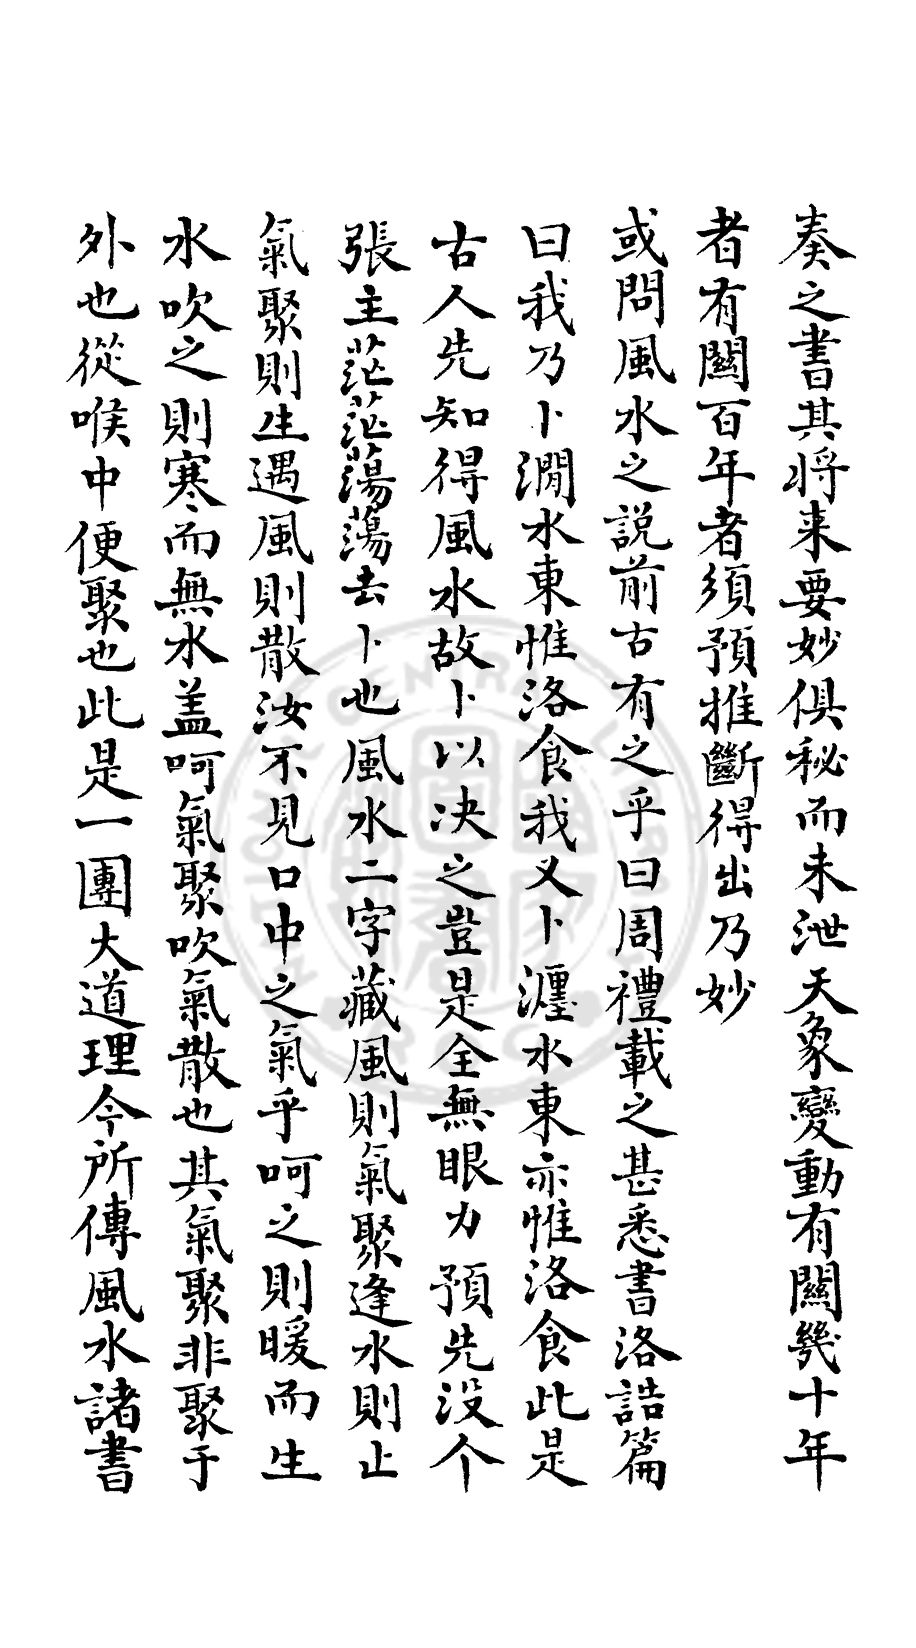 奏之書其將来要妙俱秘而未泄天象變動有關幾十年
者有關百年者須預推斷得出乃妙
或問風水之説前古有之乎曰周禮載之甚悉書洛誥篇
曰我乃卜澗水東惟洛食我又卜瀍水東亦惟洛食此是
古人先知得風水故卜以决之豈是全無眼力預先没个
張主茫茫蕩蕩去卜也風水二字藏風則氣聚逢水則止
氣聚則生遇風則散汝不見口中之氣乎呵之則暖而生
水吹之則寒而無水盖呵氣聚吹氣散也其氣聚非聚于
外也從喉中便聚也此是一團大道理今所傳風水諸書